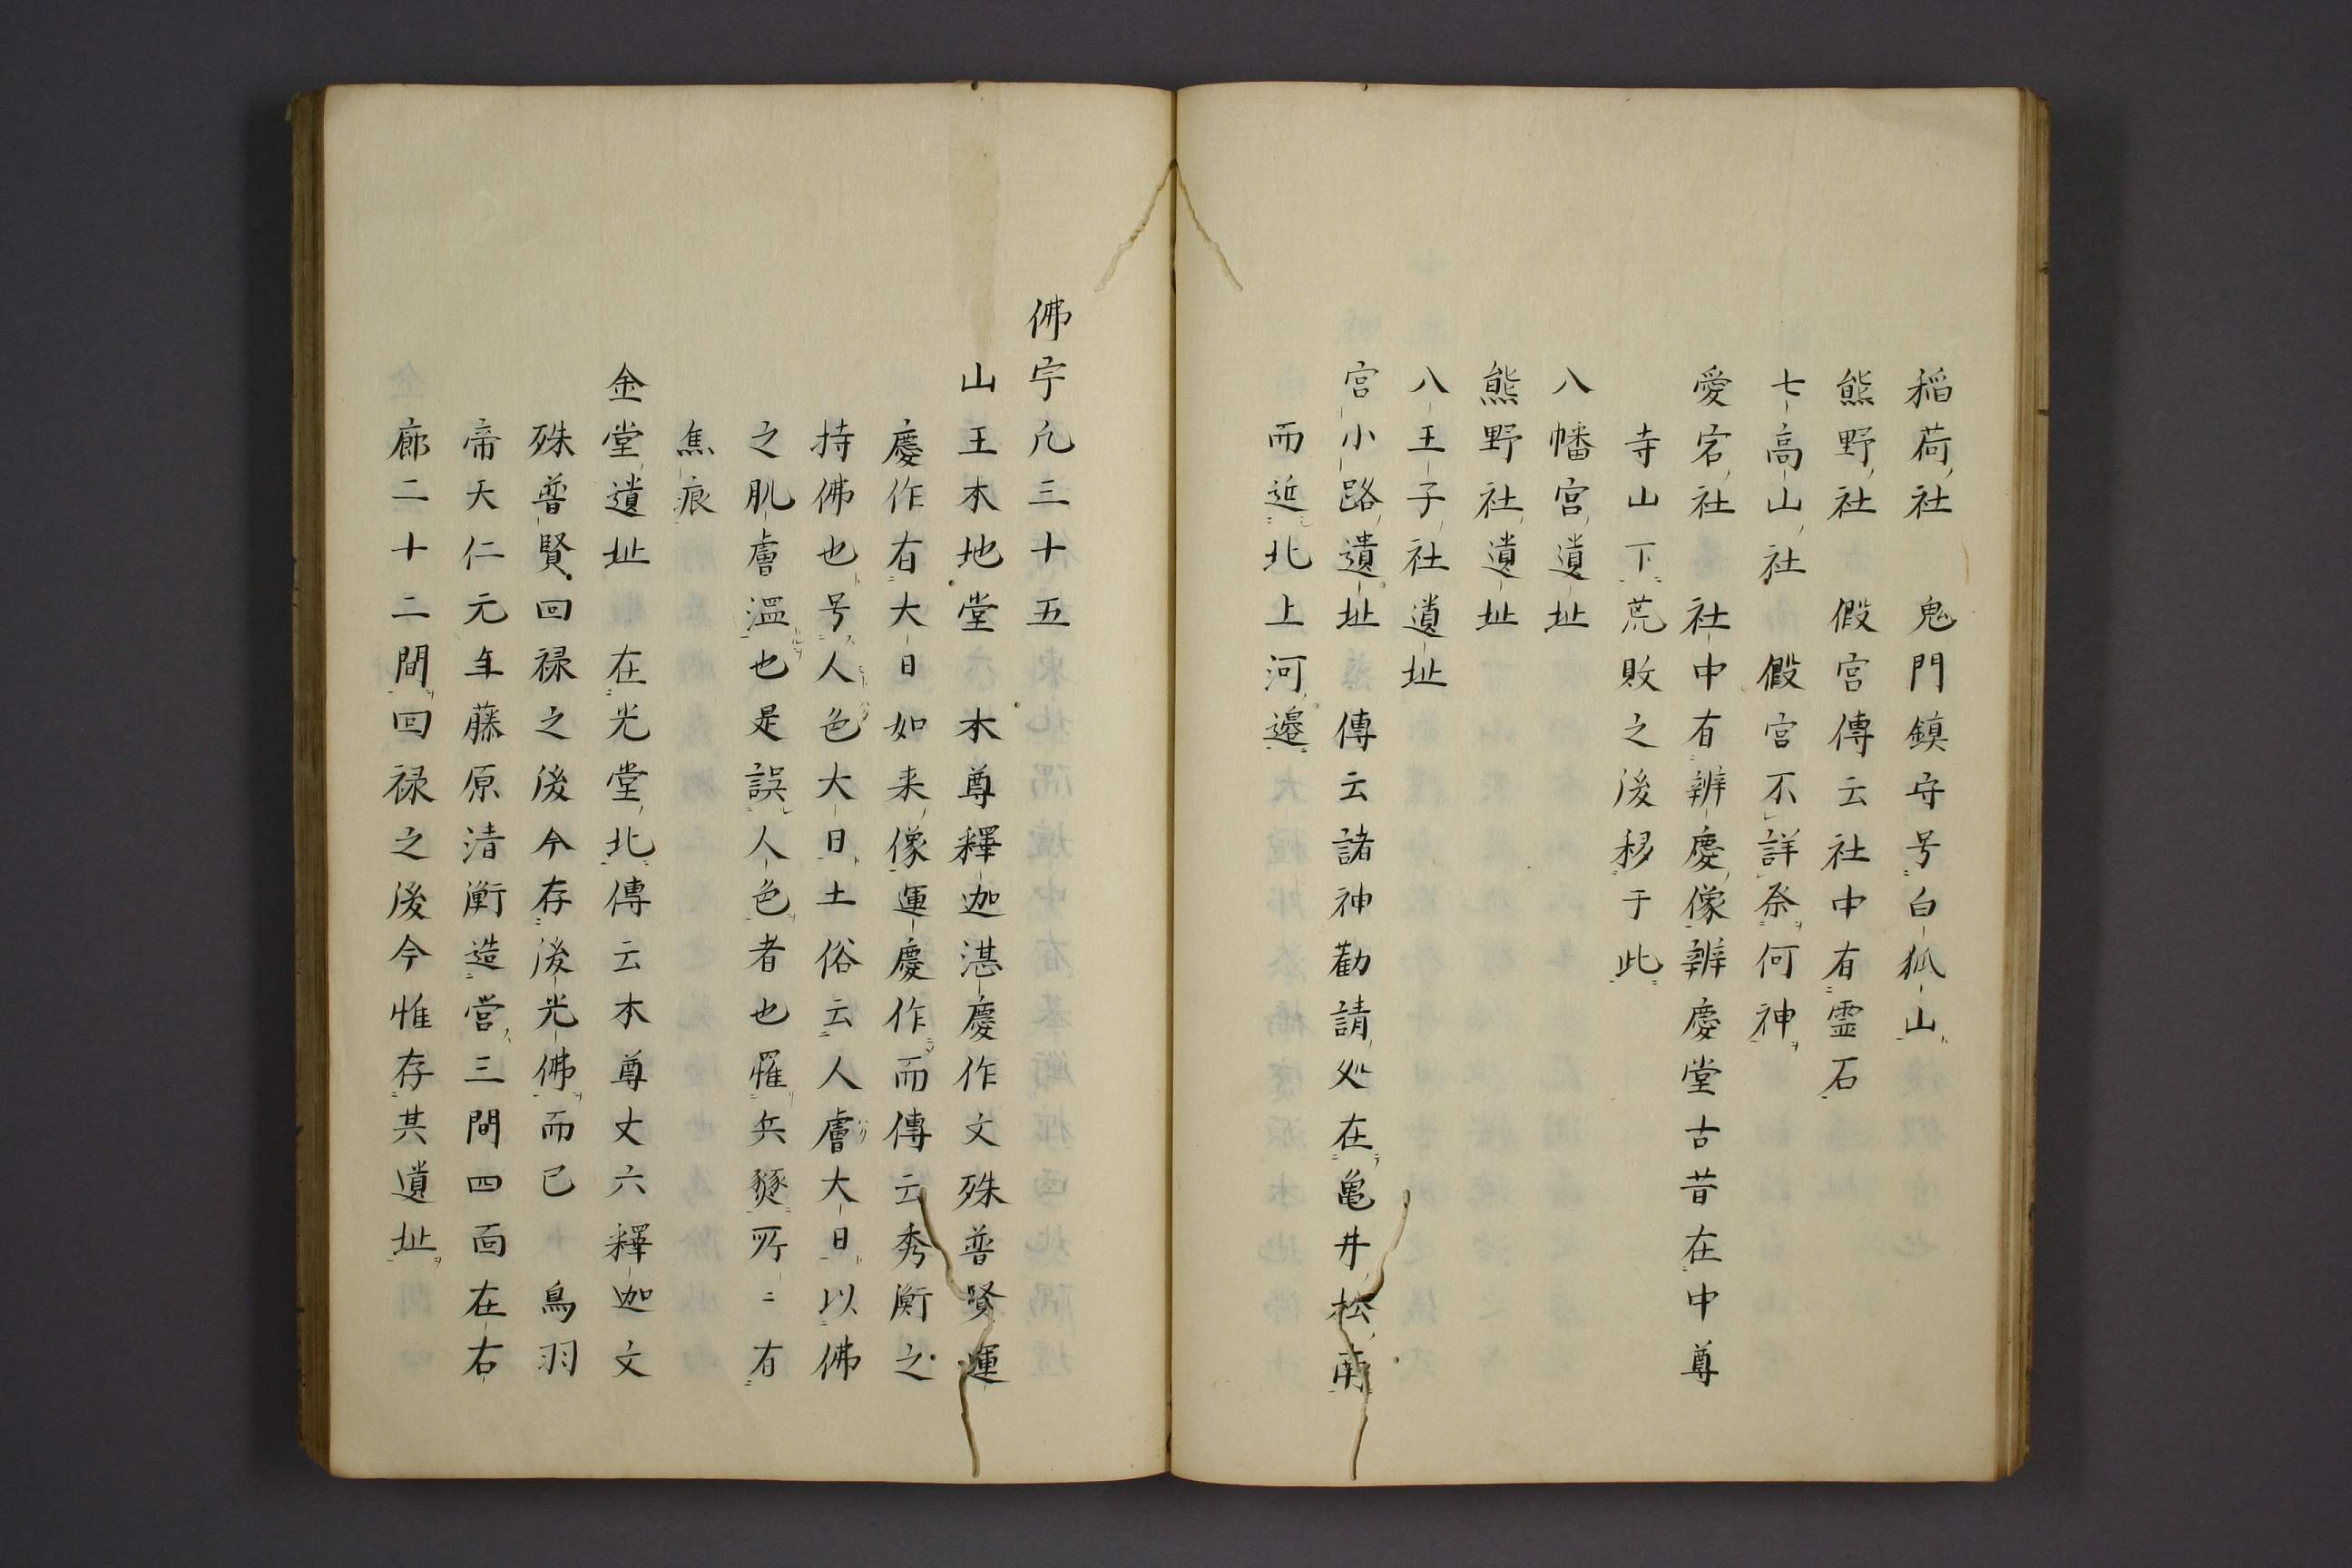 稲荷社　鬼門鎮守号白狐山
熊野社　假宮傳云社中有霊石
七高山社　假宮不詳祭何神
愛宕社　社中有辨慶像辨慶堂古昔在中尊
寺山下荒敗之後移于此
八幡宮遺址
熊野社遺址
八王子社遺址
宮小路遺址　傳云諸神勸請処在亀井松南
而近北上河邉
佛宇凡三十五
山王本地堂　本尊釋迦湛慶作文殊普賢運
慶作有大日如来像運慶作而傳云秀衡之
持佛也号人色大日土俗云人膚大日以佛
之肌膚温也是誤人色者也罹兵燹所二有
焦痕
金堂遺址　在光堂北傳云本尊丈六釋迦文
殊普賢回禄之後今存後光佛而已　鳥羽
帝天仁元年藤原清衡造営三間四面在右
廊二十二間回禄之後今惟存其遺址